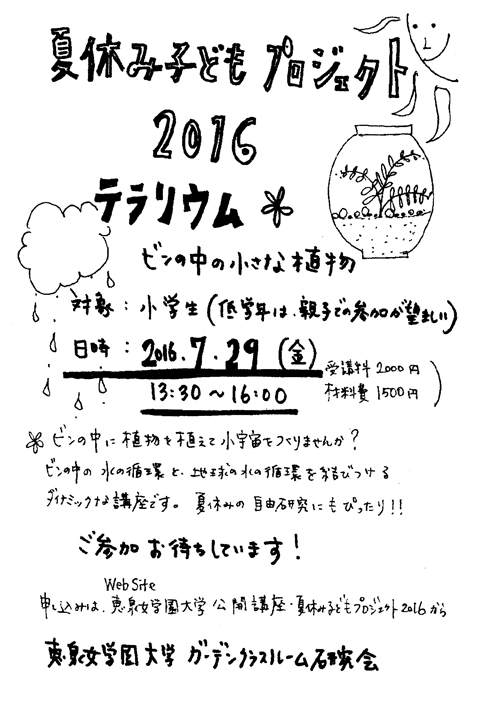 夏休み子どもプロジェクト
2016
テラリウム
ビンの中の小さな植物
対象：小学生（低学年は、親子での参加が望ましい）
日時：2016.7.29（金）
13:30～16:00
受講料 2000円
材料費 1500円）
ビンの中に植物を植えて小宇宙をつくりませんか？
ビンの中の水の循環と、地球の水の循環を結びつける
ダイナミックな講座です。夏休みの自由研究にもぴったり!!
ご参加お待ちしています！
Web Site
申し込みは、恵泉女学園大学公開講座・夏休み子どもプロジェクト2016から
恵泉女学園大学 ガーデンクラスルーム研究会